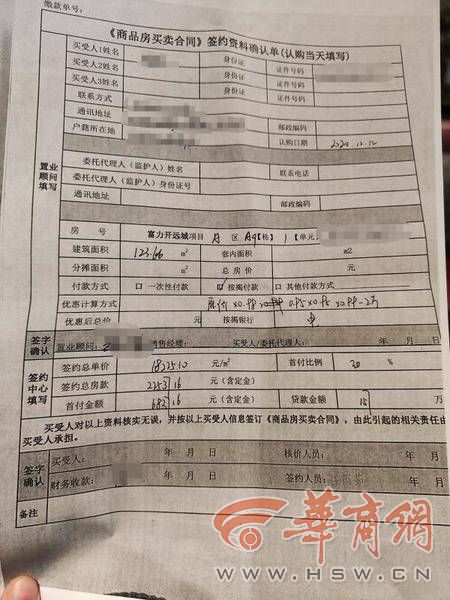 缴款单号:
《商品房买卖合同》签约资料确认单(认购当天填写)
买受人1姓名 身份证 证件号码
买受人2姓名 身份证 证件号码
买受人3姓名 身份证 证件号码
联系方式
通讯地址 邮政编码
户籍所在地 认购日期 2020.12.12
置业顾问填写
委托代理人(监护人)姓名 联系电话
委托代理人(监护人)身份证号
通讯地址 邮政编码
房 号 富力开远城项目 A 区 A9【栋】 1【单元,
建筑面积 123.66 m² 套内面积 m2
分摊面积 m² 总 房 价 元
付款方式 □ 一次性付款 ☑按揭付款 □ 其他付款方式
优惠计算方式
优惠后总价 元 按揭银行
签字确认 置业顾问: 销售经理: 买受人/委托代理人: 年 月 日
签约中心填写
签约总单价 18225.10 元/m² 首付比例 30 %
签约总房款 元(含定金)
首付金额 元(含定金) 贷款金额 万
买受人对以上资料核实无误,并按以上买受人信息签订《商品房买卖合同》,由此引起的相关责任由
买受人承担。
签字确认
买受人: 年 月 日 核价人员: 年 月
财务收款: 年 月 日 签约人员: 年 月
备注
華商網
WWW.HSW.CN